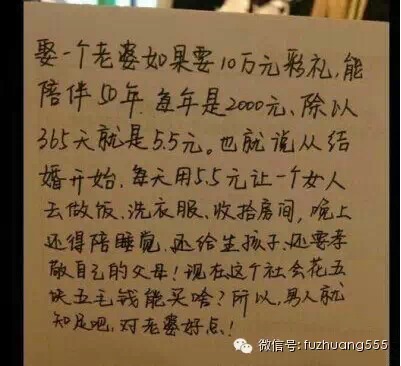 娶一个老婆如果要10万元彩礼,能
陪伴50年.每年是2000元、除以
365天就是5.5元。也就说从结
婚开始.每天用5.5元让一个女人
去做饭、洗衣服、收拾房间,晚上
还得陪睡觉、还给生孩子、还要孝
敬自己的父母!现在这个社会花五
块五毛钱能买啥?所以,男人就
知足吧,对老婆好点!
微信号: fuzhuang555